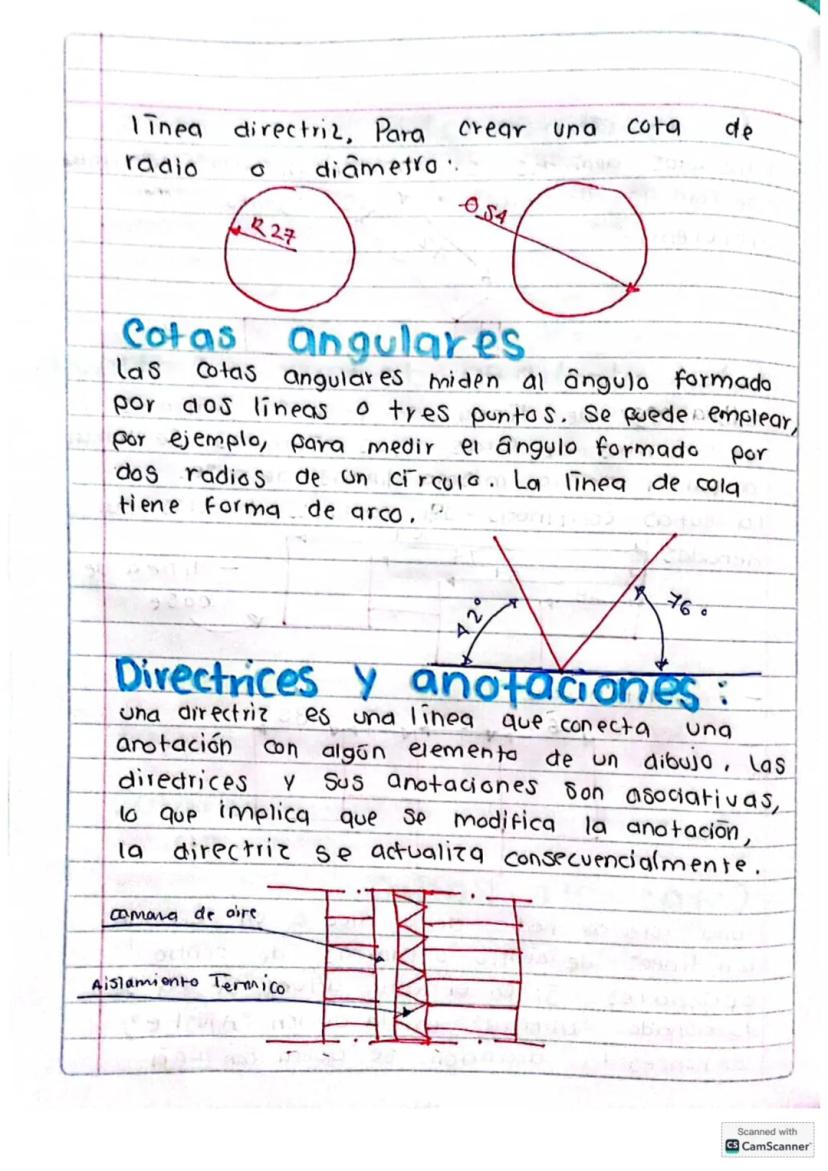 línea directriz, Para crear una cota de
radio o diámetro.
R27
Ø54
Cotas angulares
las cotas angulares miden al ángulo formado
por dos líneas o tres puntos. Se puede emplear,
por ejemplo, para medir el ángulo formado por
dos radios de un círculo. La línea de cola
tiene forma de arco.
42°
76°
Directrices y anotaciones:
una directriz es una línea que conecta una
anotación con algún elemento de un dibujo. Las
directrices y sus anotaciones son asociativas,
lo que implica que se modifica la anotación,
la directriz se actualiza consecuencialmente.
camara de aire
Aislamiento Termico
Scanned with
CS CamScanner